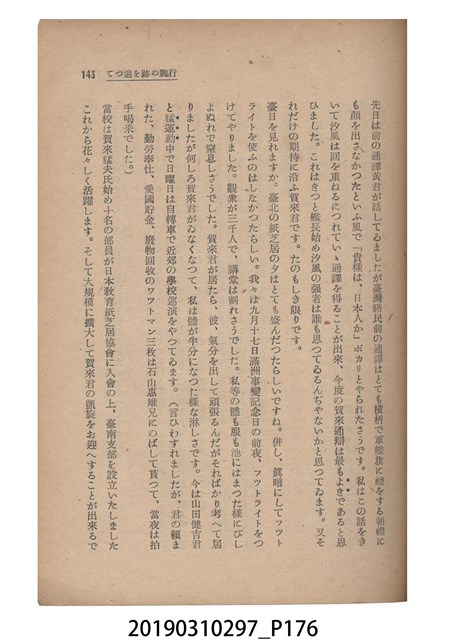 行脚の跡を追つて 143
先日は前の通譯黃君が話してゐましたが臺灣籍民前の通譯はとても橫柄で軍艦旗に禮をする朝禮に
も顏を出さなかつたといふ風で「貴樣は、日本人か」ポカリとやられたさうです。私はこの話をき
いて汐風は回を重ねるにつれていゝ通譯を得ることが出來、今度の賀來通辯は最もよきであると思
ひました。これはきつと艦長始め汐風の强者は誰も思つてゐるんぢやないかと思つてゐます。又そ
れだけの期待に沿ふ賀來君です。たのもしき限りです。
臺日を見れますか。臺北の紙芝居の夕はとても盛んだつたらしいですね。併し、眞暗にしてフツト
ライトを使ふのはしなかつたらしい。我々は九月十七日滿洲事變記念日の前夜、フツトライトをつ
けてやりました。觀衆が三千人で、講堂は割れさうでした。私等の體も服も池にはまつた樣にびし
よぬれで窒息しさうでした。賀來君が居たら、彼、氣分を出して頑張るんだがそればかり考へて居
りましたが何しろ賀來君がゐなくなつて、私は體が半分になつた樣な淋しさです。今は山田健吉君
と猛運動中で日曜日は自轉車で近郊の學校巡演をやつてゐます。（言ひわすれましたが、君の賴ま
れた、勤勞奉仕、愛國好金、廢物回收のワツトマン三枚は石山惠雄兄にのばして貰つて、當夜は拍
手喝采でした。）
當校は賀來猛夫氏始め十名の部員が日本敎育紙芝居協會に入會の上、臺南支部を設立いたしました
これから花々しく活躍します。そして大規模に擴大して賀來君の凱旋をお迎へすることが出來るで
20190310297_P176